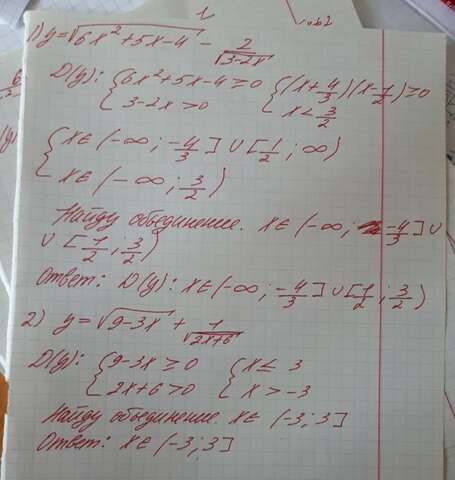 1
1) y=√(6x²+5x-4) - 2/√(3-2x)
D(y): {6x²+5x-4≥0 {(x+4/3)(x-1/2)≥0
3-2x>0 x<3/2
{x∈(-∞; -4/3]∪[1/2; ∞)
x∈(-∞; 3/2)
Найду объединение. x∈(-∞; -4/3]∪
∪[1/2; 3/2)
Ответ: D(y): x∈(-∞; -4/3]∪[1/2; 3/2)
2) y=√(9-3x) + 1/√(2x+6)
D(y): {9-3x≥0 {x≤3
2x+6>0 x>-3
Найду объединение. x∈(-3;3]
Ответ: x∈(-3;3]